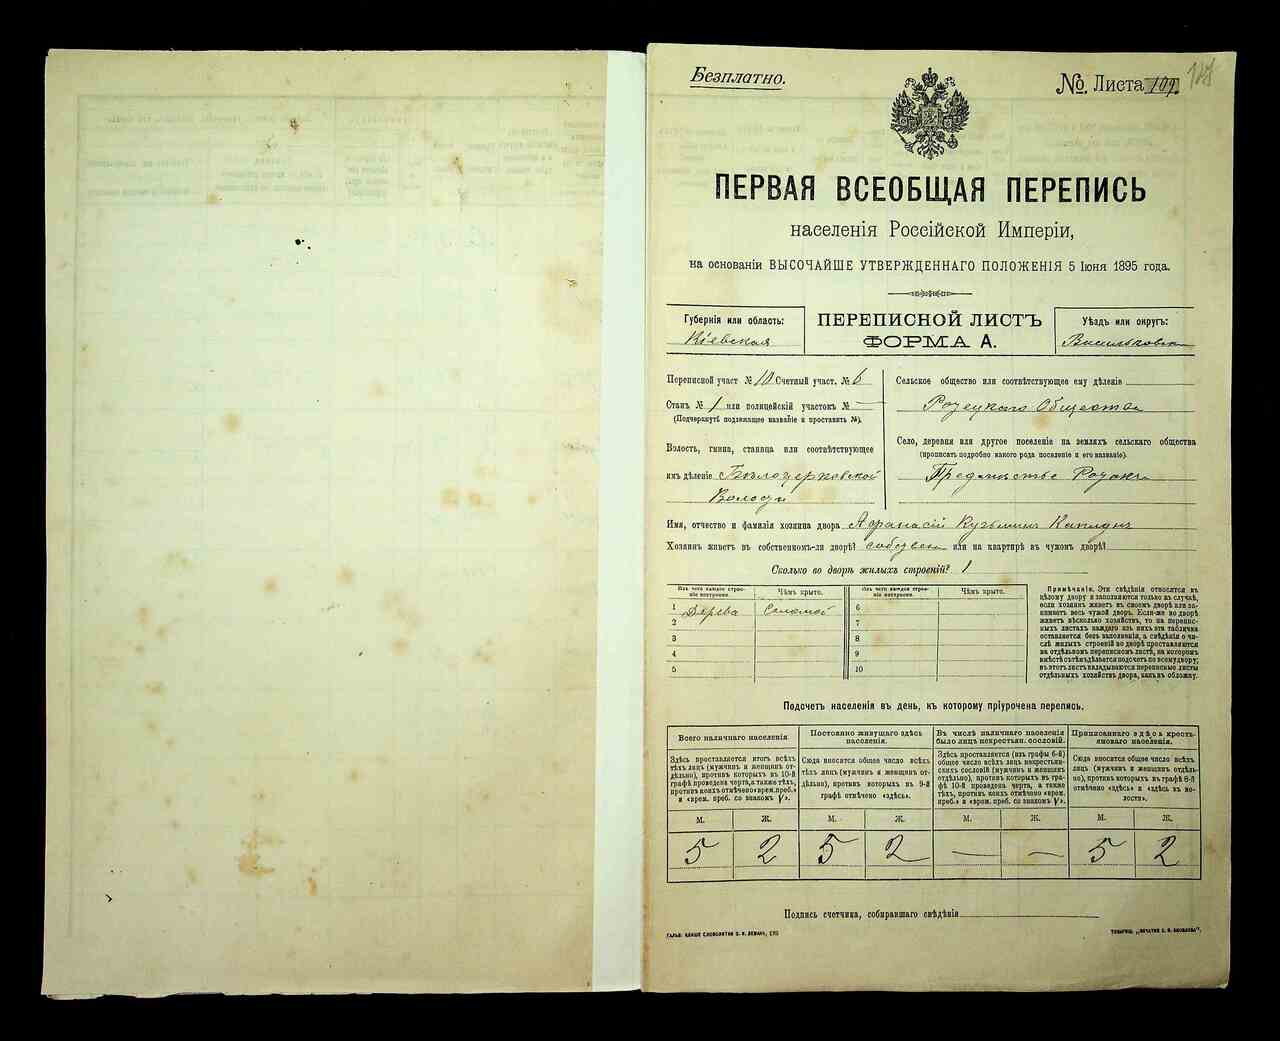 Безплатно.
№. Листа 109. 127
ПЕРВАЯ ВСЕОБЩАЯ ПЕРЕПИСЬ
населенія Россійской Имперіи,
на основаніи ВЫСОЧАЙШЕ УТВЕРЖДЕННАГО ПОЛОЖЕНІЯ 5 Іюня 1895 года.
Губернія или область:
Кіевская
ПЕРЕПИСНОЙ ЛИСТЪ
ФОРМА А.
Уѣздъ или округъ:
Васильковск
Переписной участ № 10 Счетный участ. № 6
Станъ № 1 или полицейскій участокъ № —
(Подчеркнуть подлежащее названіе и проставить №).
Волость, гмина, станица или соотвѣтствующее
имъ дѣленіе Бѣлоцерковской
Волости
Сельское общество или соотвѣтствующее ему дѣленіе
Общества
Село, деревня или другое поселеніе на земляхъ сельскаго общества
(прописать подробно какого рода поселеніе и его названіе).
Предмѣстье
Имя, отчество и фамилія хозяина двора Афанасій Кузьминъ
Хозяинъ живетъ въ собственномъ-ли дворѣ? собствен или на квартирѣ въ чужомъ дворѣ?
Сколько во дворѣ жилыхъ строеній? 1
Изъ чего каждое строеніе построено.
Чѣмъ крыто.
Изъ чего каждое строеніе построено.
Чѣмъ крыто.
1 Дерева Соломой 6
2 7
3 8
4 9
5 10
Примѣчаніе. Эти свѣдѣнія относятся къ
цѣлому двору и заполняются только въ случаѣ,
если хозяинъ живетъ въ своемъ дворѣ или занимаетъ
весь чужой дворъ. Если-же во дворѣ
живетъ нѣсколько хозяйствъ, то на переписныхъ
листахъ каждаго изъ нихъ эта табличка
оставляется безъ заполненія, а свѣдѣнія о числѣ
жилыхъ строеній во дворѣ проставляются
на отдѣльномъ переписномъ листѣ, на которомъ
вмѣстѣ съ тѣмъ дѣлается подсчетъ по всему двору;
въ этотъ листъ вкладываются переписные листы
отдѣльныхъ хозяйствъ двора, какъ въ обложку.
Подсчетъ населенія въ день, къ которому пріурочена перепись.
Всего наличнаго населенія
Постоянно живущаго здѣсь населенія.
Въ числѣ наличнаго населенія было лицъ некрестьян. сословій.
Приписаннаго здѣсь крестьянскаго населенія.
Здѣсь проставляется итогъ всѣхъ тѣхъ лицъ (мужчинъ и женщинъ отдѣльно), противъ которыхъ въ 10-й графѣ проведена черта, а также тѣхъ, противъ коихъ отмѣчено «врем. преб.» и «врем. преб. со знакомъ V».
Сюда вносится общее число всѣхъ тѣхъ лицъ (мужчинъ и женщинъ отдѣльно), противъ которыхъ въ 9-й графѣ отмѣчено «здѣсь».
Здѣсь проставляется (изъ графы 6-й) общее число всѣхъ лицъ некрестьянскихъ сословій (мужчинъ и женщинъ отдѣльно), противъ которыхъ въ графѣ 10-й проведена черта, а также тѣхъ, противъ коихъ отмѣчено «врем. преб.» и «врем. преб. со знакомъ V».
Сюда вносится общее число всѣхъ лицъ (мужчинъ и женщинъ отдѣльно), противъ которыхъ въ графѣ 8-й отмѣчено «здѣсь» и «здѣсь въ волости».
М. Ж. М. Ж. М. Ж. М. Ж.
5 2 5 2 — — 5 2
Подпись счетчика, собиравшаго свѣдѣнія